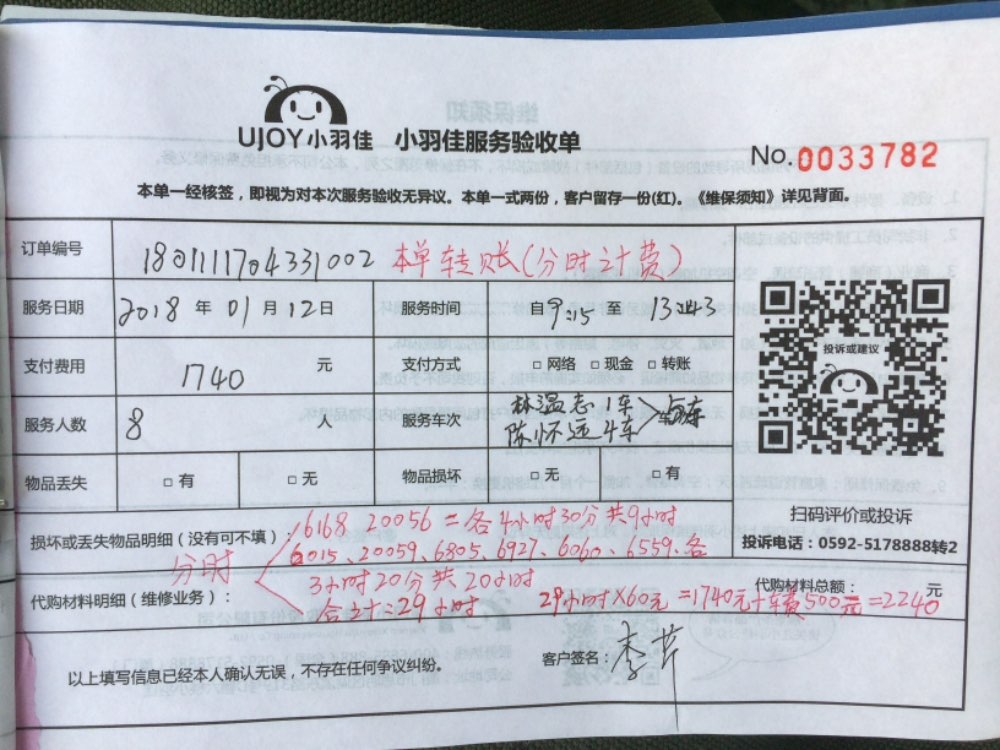 UJOY小羽佳 小羽佳服务验收单
No.0033782
本单一经核签，即视为对本次服务验收无异议。本单一式两份，客户留存一份(红)。《维保须知》详见背面。
订单编号 1801111704331002 本单转账(分时计费)
服务日期 2018 年 01 月 12 日 服务时间 自 9:15 至 13:43
支付费用 1740 元 支付方式 □ 网络 □ 现金 □ 转账
投诉或建议
服务人数 8 人 服务车次 林温志 1车
陈怀远 4车
物品丢失 □ 有 □ 无 物品损坏 □ 无 □ 有
扫码评价或投诉
投诉电话：0592-5178888转2
损坏或丢失物品明细（没有可不填）：6168 20056 = 各4小时30分共9小时
分时 6015、20059、6805、6921、6060、6559、各
3小时20分共20小时
代购材料明细（维修业务）： 合计:29小时 29小时×60元 =1740元+车费500元=2240
代购材料总额： 元
以上填写信息已经本人确认无误，不存在任何争议纠纷。 客户签名：